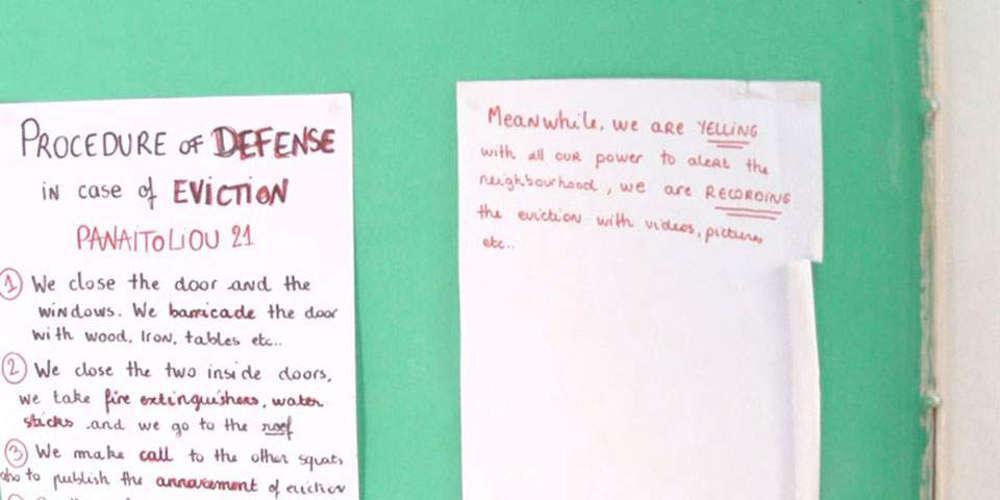 PROCEDURE OF DEFENSE
in case of EVICTION
PANAITOLIOU 21
1 We close the door and the
windows. We barricade the door
with wood, Iron, tables etc..
2 We close the two inside doors,
we take fire extinguishers, water
sticks and we go to the roof
3 We make call to the other squats
to publish the annavement of eviction
Meanwhile, we are YELLING
with all our power to alert the
neighbourhood, we are RECORDING
the eviction with videos, pictures
etc..